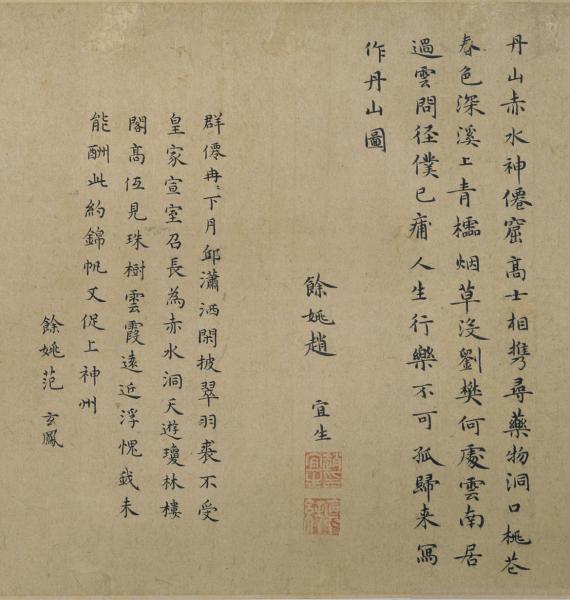 丹山赤水神僊窟高士相携尋藥物洞口桃花
春色深溪上青檽烟草沒劉樊何處雲南居
過雲問徑僕已痡人生行樂不可孤歸来寫
作丹山圖
餘姚趙 宜生
群僊冉〻下月邱瀟洒閑披翠羽裘不受
皇家宣室召長為赤水洞天遊瓊林樓
閣高伍見珠樹雲霞遠近浮愧我未
能酬此約錦帆又促上神州
餘姚范 玄鳳